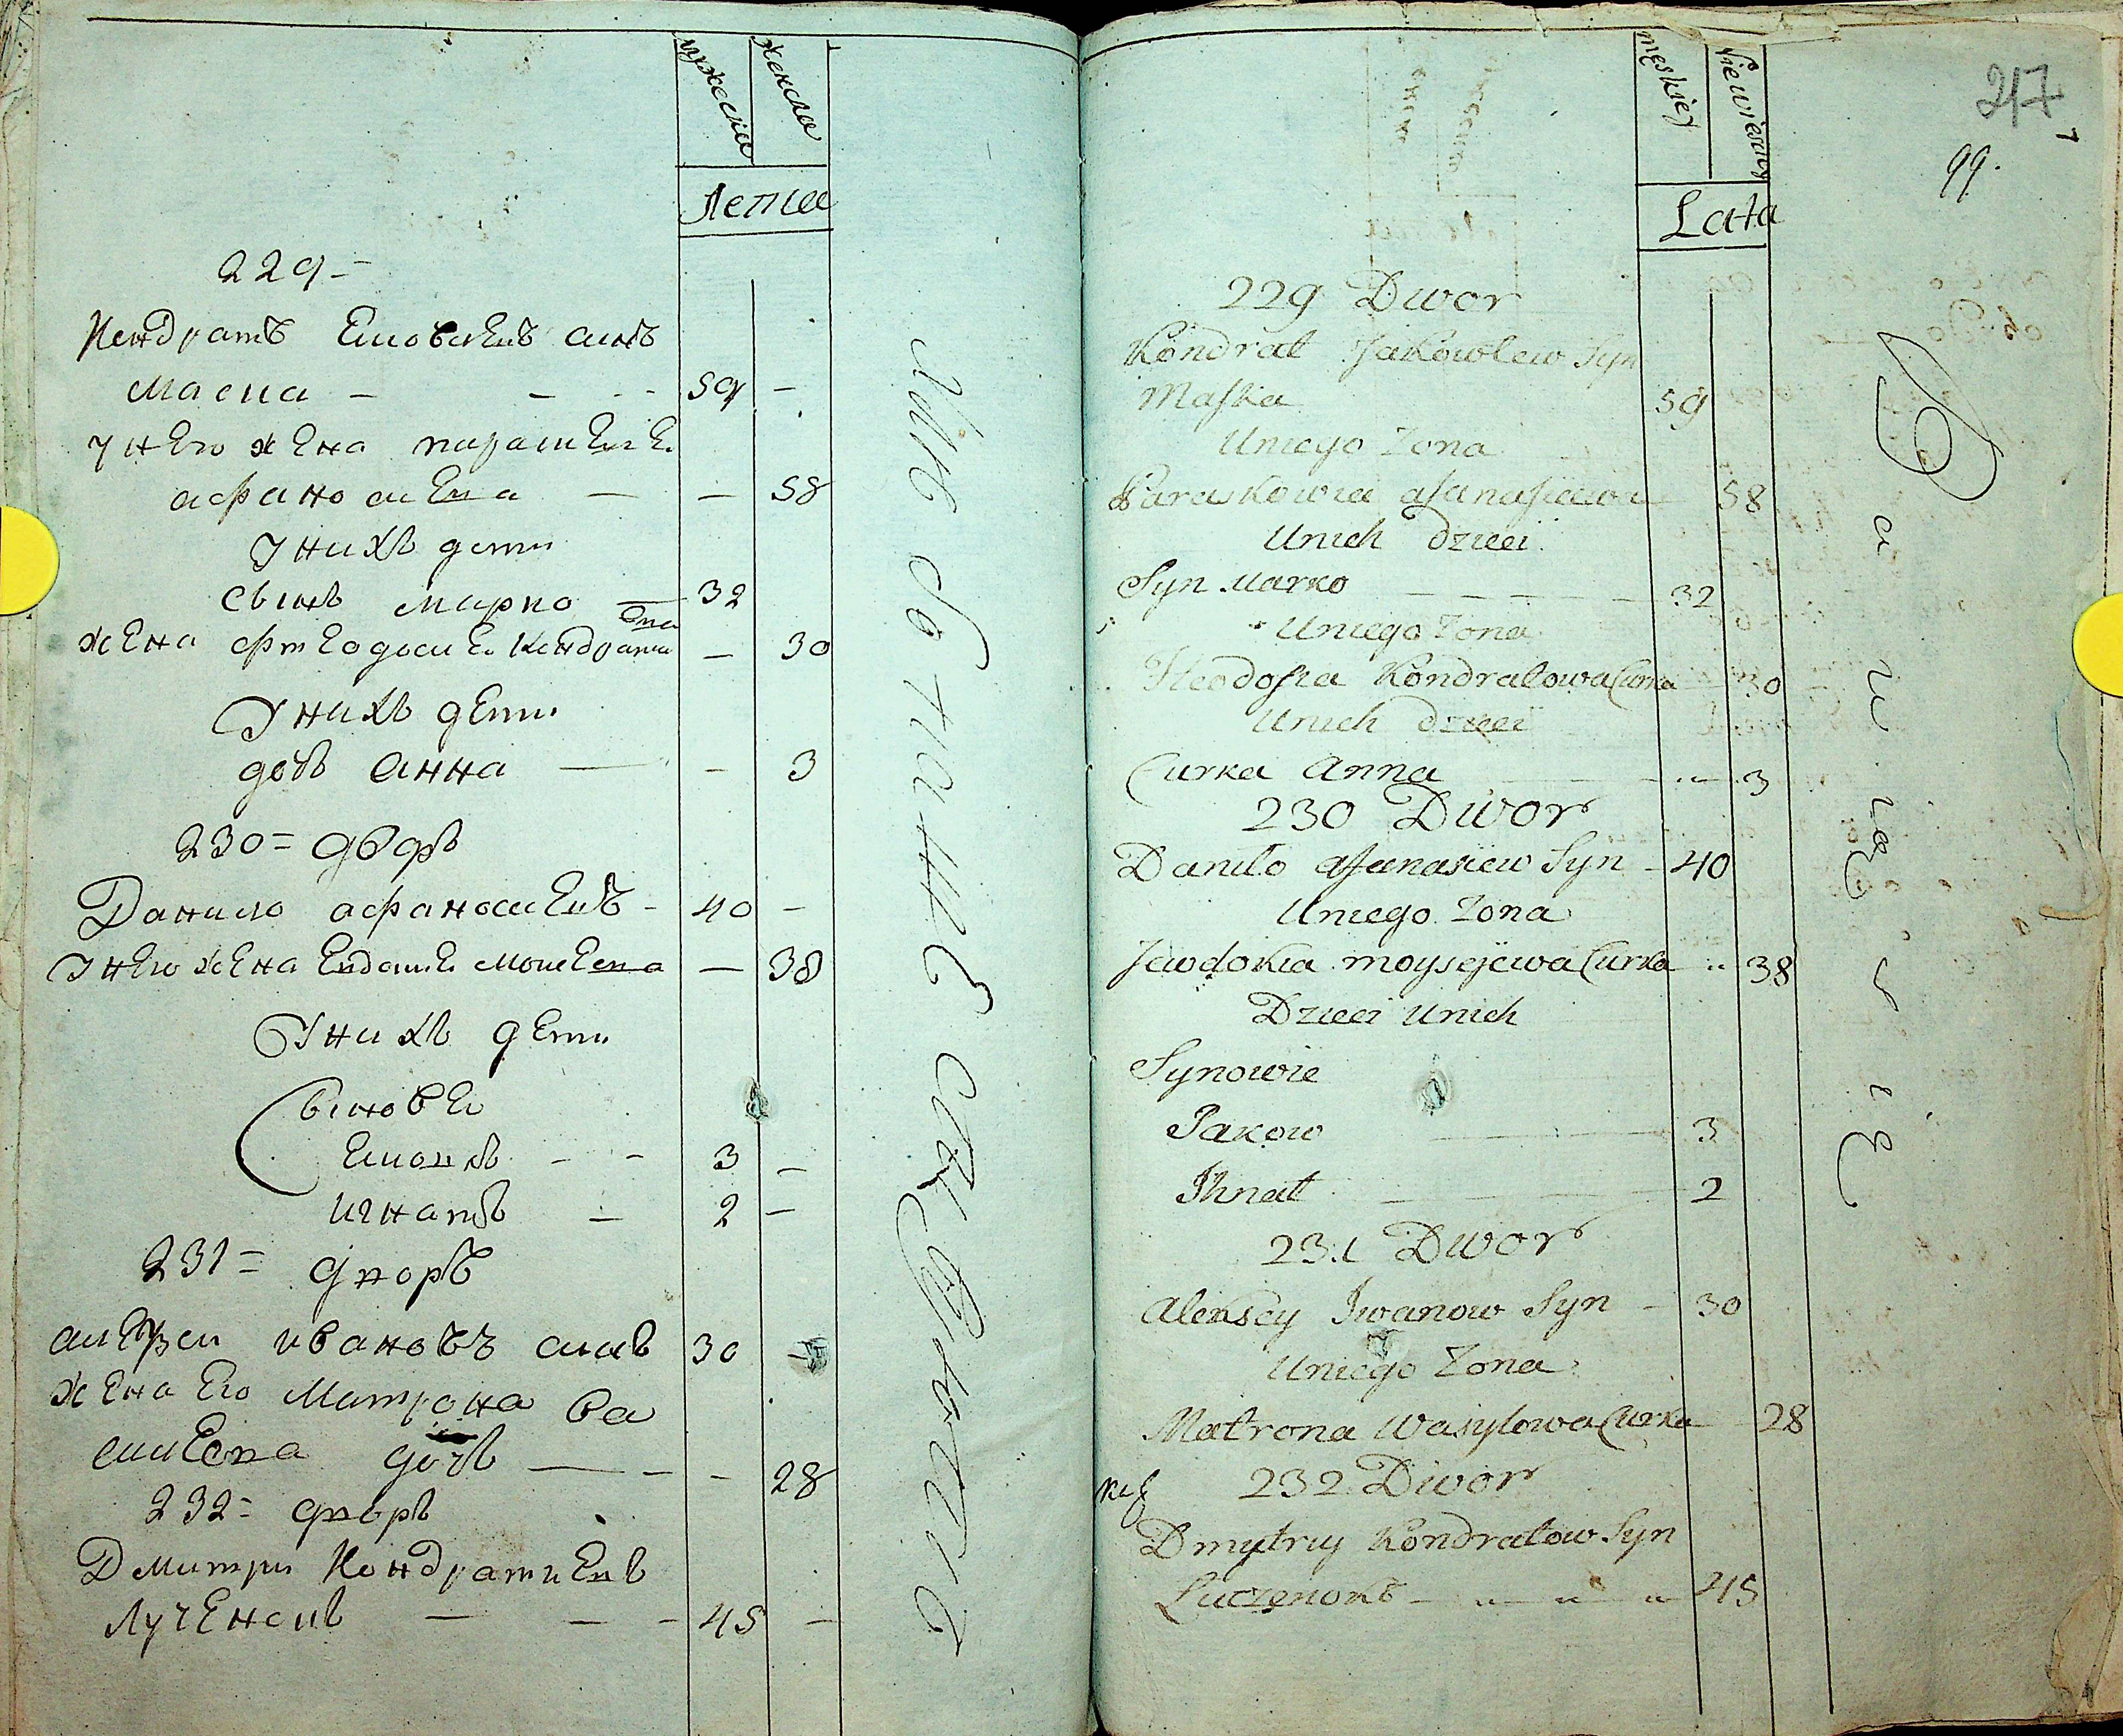 мужеска
женска
Летие
229 =
Кондратъ Яковлевъ синъ
Маска — — — 59 —
У нево жена параскевя
афаносиева — — 58
У нихъ дети
Сынъ марко — 32
жена фтеодосия Кондратиева — 30
У нихъ дети
дочь Анна — — 3
230 = дворъ
Данило афаносиевъ — 40 —
У нево жена Евдокия моисеева — 38
У нихъ дети
Сыновья
Яковъ — — 3 —
игнатъ — 2 —
231 = дворъ
алексеи ивановъ синъ 30 —
жена его Матрона Ва
силева дочь — — — 28
232 = дворъ
Дмитри Кондратиевъ
Лученокъ — — — 45 —
męskiey
Niewiesciey
Lata
217
99.
229 Dwor
Kondrat Jakowlew Syn
Maska 59
Uniego Zona
Paraskowia afanasiewa 58
Unich dzieci
Syn Marko — — — — 32
Uniego Zona
Fteodosia Kondratowa Curka 30
Unich dzieci
Curka Anna 3
230 Dwor
Daniło afanasiew Syn - 40
Uniego Zona
Jewdokia moysejewa Curka 38
Dzieci Unich
Synowie
Jakow 3
Ihnat 2
231 Dwor
Alexsey Iwanow Syn - 30
Uniego Zona
Matrona Wasylowa Curka 28
232 Dwor
Dmytriy Kondratow Syn
Łuczenok 45